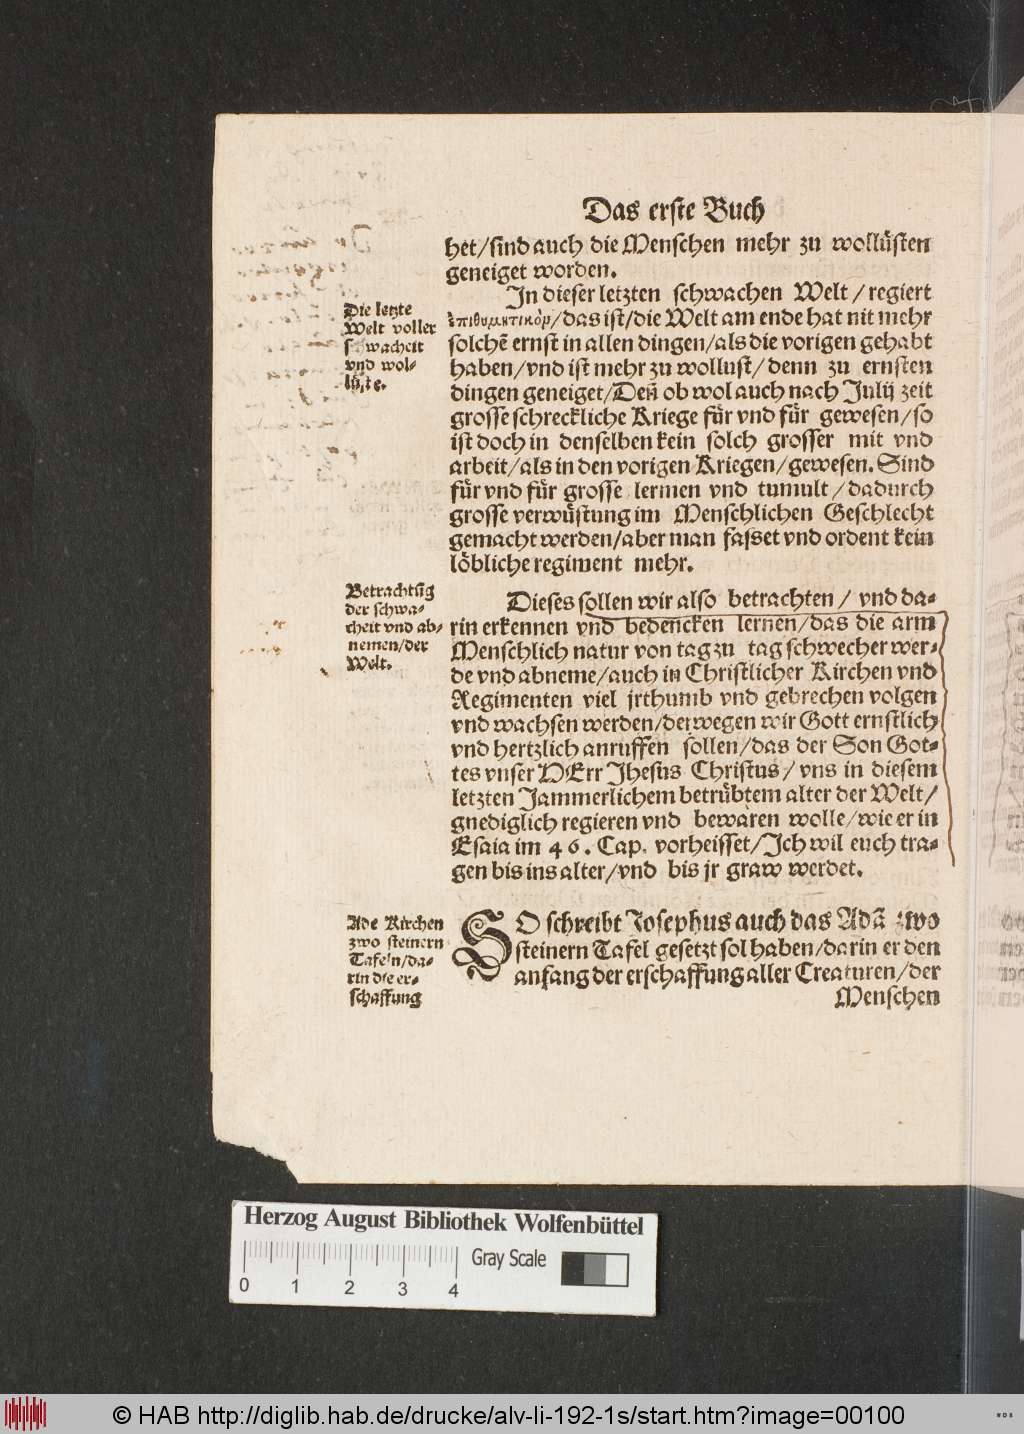 Das erste Buch
het/sind auch die Menschen mehr zu wollüsten
geneiget worden.
In dieser letzten schwachen Welt/regiert
ἐπιθυμητικὸν/das ist/die Welt am ende hat nit mehr
solchẽ ernst in allen dingen/als die vorigen gehabt
haben/vnd ist mehr zu wollust/denn zu ernsten
dingen geneiget/Deñ ob wol auch nach Julij zeit
grosse schreckliche Kriege für vnd für gewesen/so
ist doch in denselben kein solch grosser mit vnd
arbeit/als in den vorigen Kriegen/gewesen. Sind
für vnd für grosse lermen vnd tumult/dadurch
grosse verwüstung im Menschlichen Geschlecht
gemacht werden/aber man fasset vnd ordent kein
löbliche regiment mehr.
Die letzte
Welt voller
schwacheit
vnd wol-
lüste.
Dieses sollen wir also betrachten/vnd da-
rin erkennen vnd bedencken lernen/das die arm
Menschlich natur von tag zu tag schwecher wer-
de vnd abneme/auch in Christlicher Kirchen vnd
Regimenten viel jrthumb vnd gebrechen volgen
vnd wachsen werden/derwegen wir Gott ernstlich
vnd hertzlich anruffen sollen/das der Son Got-
tes vnser HErr Jhesus Christus/vns in diesem
letzten Jammerlichem betrübtem alter der Welt/
gnediglich regieren vnd bewaren wolle/wie er in
Esaia im 46. Cap. vorheisset/Ich wil euch tra-
gen bis ins alter/vnd bis jr graw werdet.
Betrachtũg
der schwa-
cheit vnd ab-
nemen/der
Welt.
SO schreibt Josephus auch das Adã zwo
steinern Tafel gesetzt sol haben/darin er den
anfang der erschaffung aller Creaturen/der
Menschen
Ade Kirchen
zwo steinern
Tafeln/da-
rin die er-
schaffung
Herzog August Bibliothek Wolfenbüttel
Gray Scale
0 1 2 3 4
© HAB http://diglib.hab.de/drucke/alv-li-192-1s/start.htm?image=00100